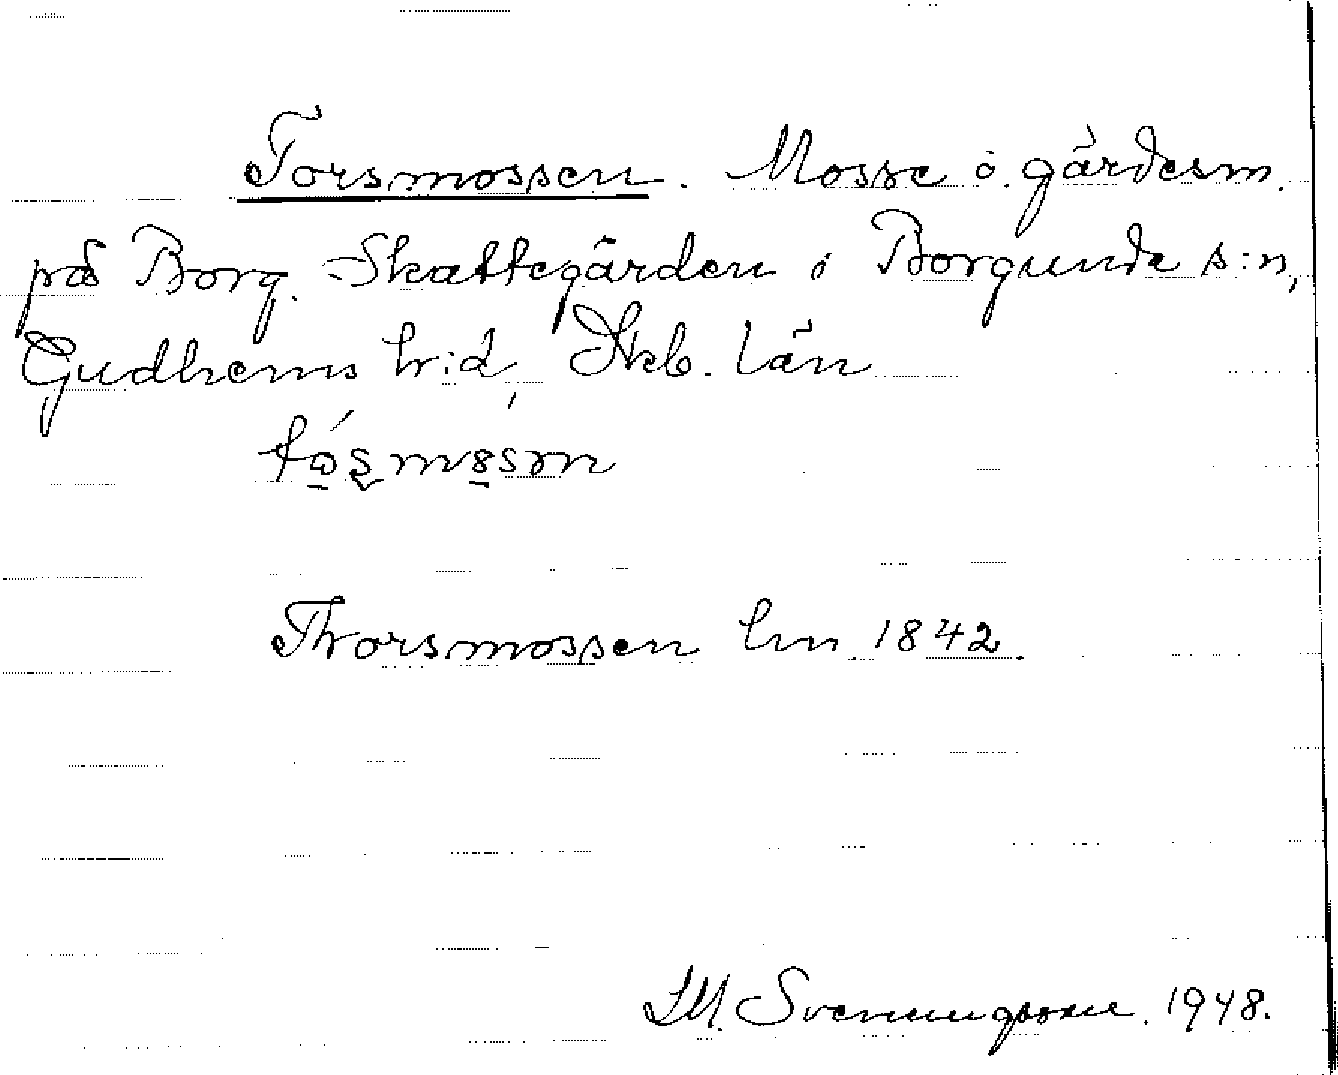 Torsmossen. Mosse o. gärdesm.
på Borg. Skattegården i Borgunda s:n,
Gudhems hr:d, Skb. län
Thorsmossen hm 1842.
Svenungsson. 1948.